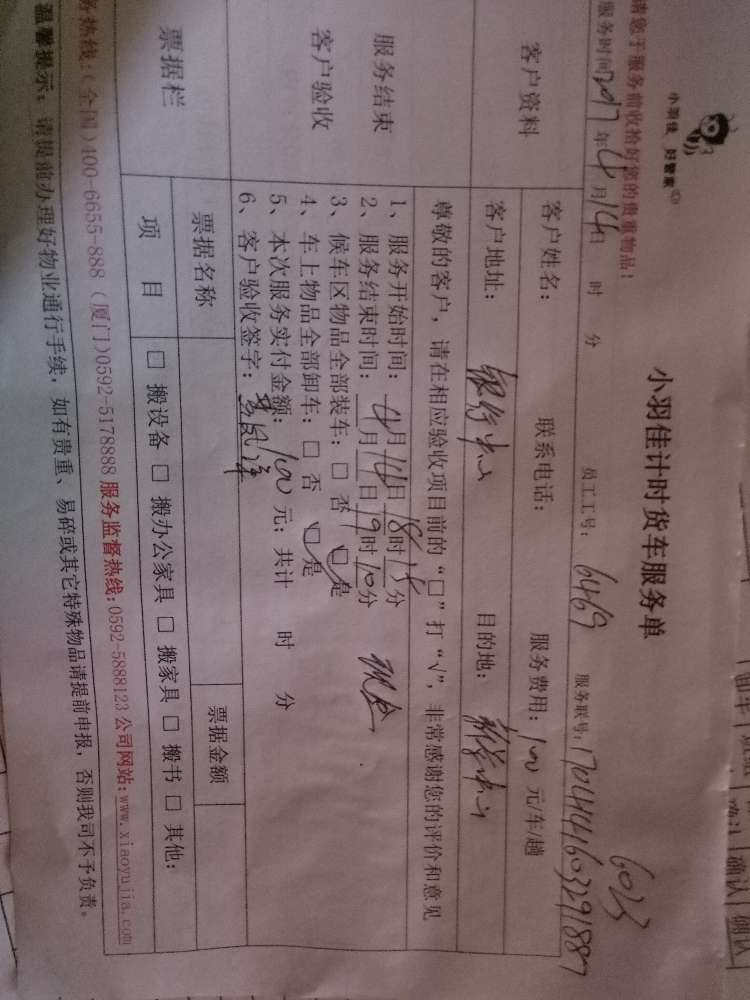 小羽佳 好管家
小羽佳计时货车服务单
6023
请您于服务前收拾好您的贵重物品!
服务时间2017年4月14日 时 分 员工工号: 6469 服务联号:
客户资料
客户姓名: 联系电话: 服务费用: 100 元/车/趟
客户地址: 银行中心 目的地:
服务结束
客户验收
尊敬的客户, 请在相应验收项目前的“□”打“√”, 非常感谢您的评价和意见
1、服务开始时间: 4月14日18时15分
2、服务结束时间: 月 日19时10分 现金
3、候车区物品全部装车: □ 否 □ 是
4、车上物品全部卸车: □ 否 □ 是
5、本次服务实付金额: 100 元; 共计 时 分
6、客户验收签字:
票据栏
票据名称 票据金额
项 目 □ 搬设备 □ 搬办公家具 □ 搬家具 □ 搬书 □ 其他:
务热线:(全国)400-6655-888 (厦门)0592-5178888 服务监督热线:0592-5888123 公司网站:www.xiaoyujia.com
温馨提示: 请提前办理好物业通行手续, 如有贵重、易碎或其它特殊物品请提前申报, 否则我司不予负责。
确认 确认 确认